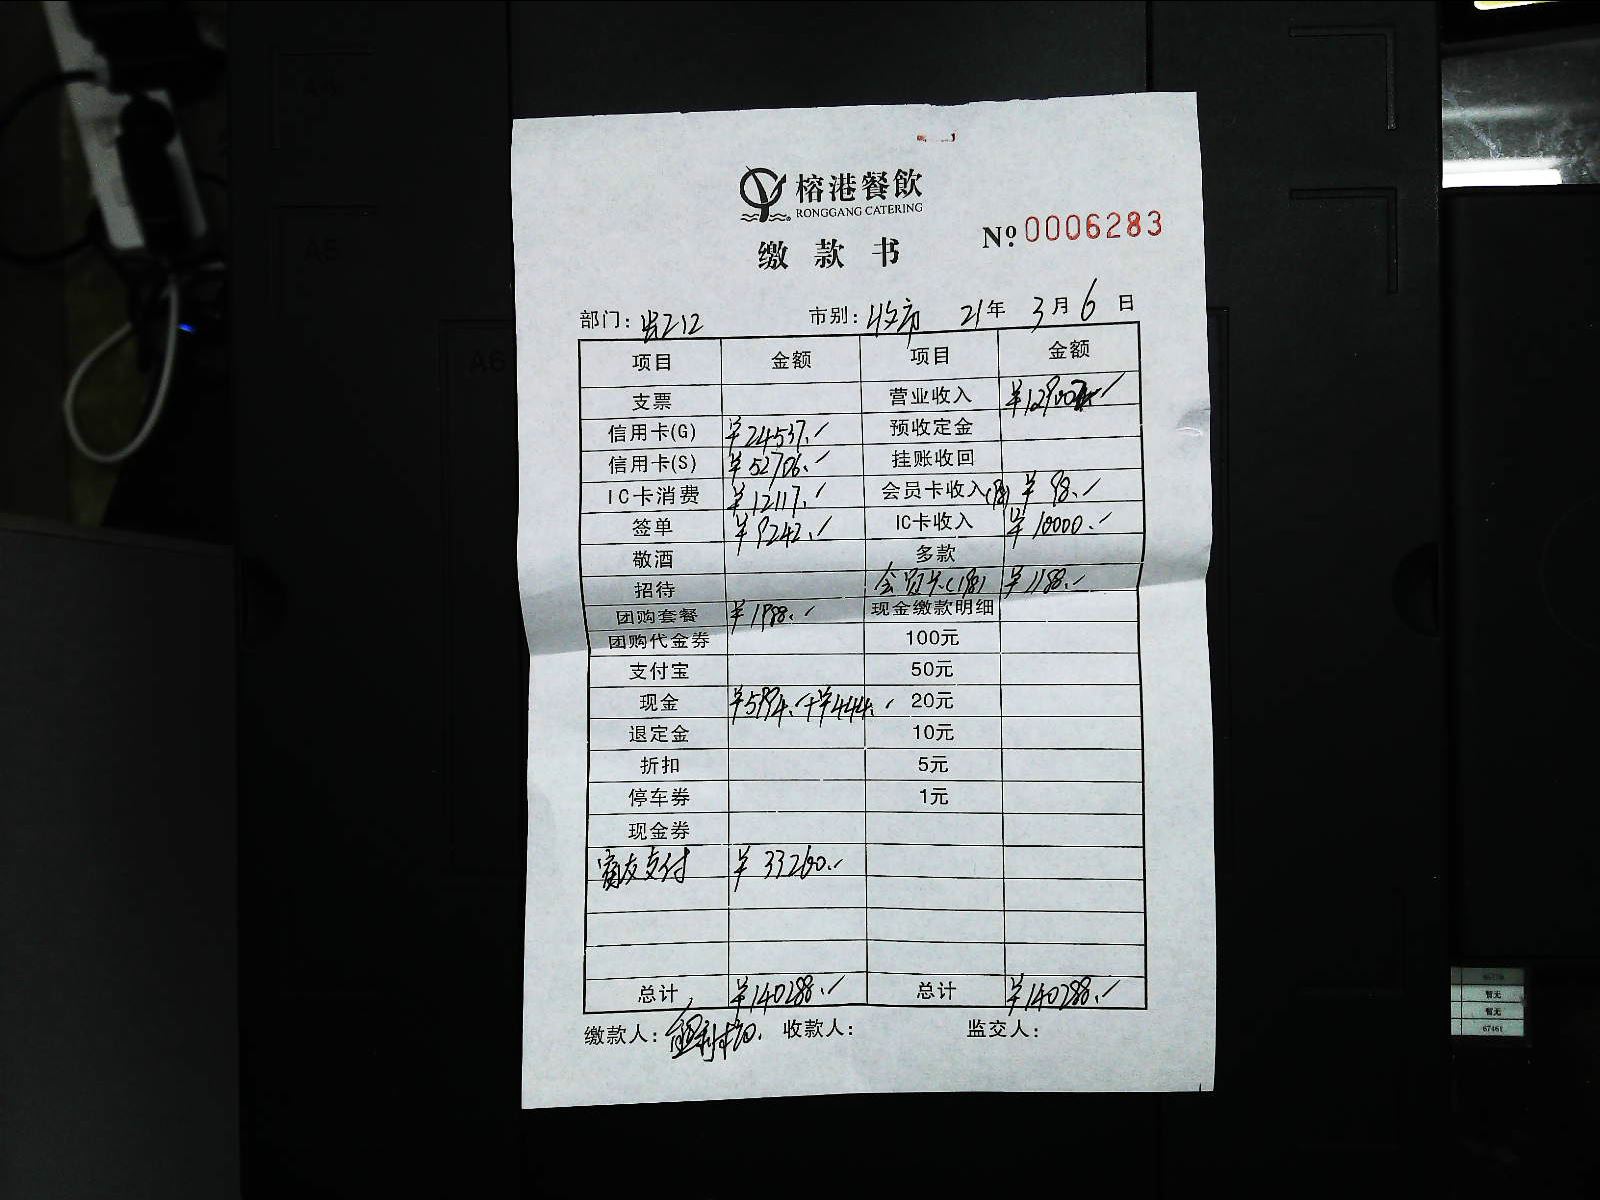 榕港餐飲
RONGGANG CATERING
缴款书
№ 0006283
部门: 市别: 收市 21年 3月6日
项目 金额 项目 金额
支票 营业收入 ¥129002.
信用卡(G) ¥24537. 预收定金
信用卡(S) ¥52706. 挂账收回
IC卡消费 ¥12117. 会员卡收入 ¥98.
签单 ¥9242. IC卡收入 ¥10000.
敬酒 多款
招待 会员卡 ¥1188.
团购套餐 ¥1988. 现金缴款明细
团购代金券 100元
支付宝 50元
现金 ¥5994.+¥444. 20元
退定金 10元
折扣 5元
停车券 1元
现金券
支付 ¥33260.
总计 ¥140288. 总计 ¥140288.
缴款人: 收款人: 监交人:
A6
A5